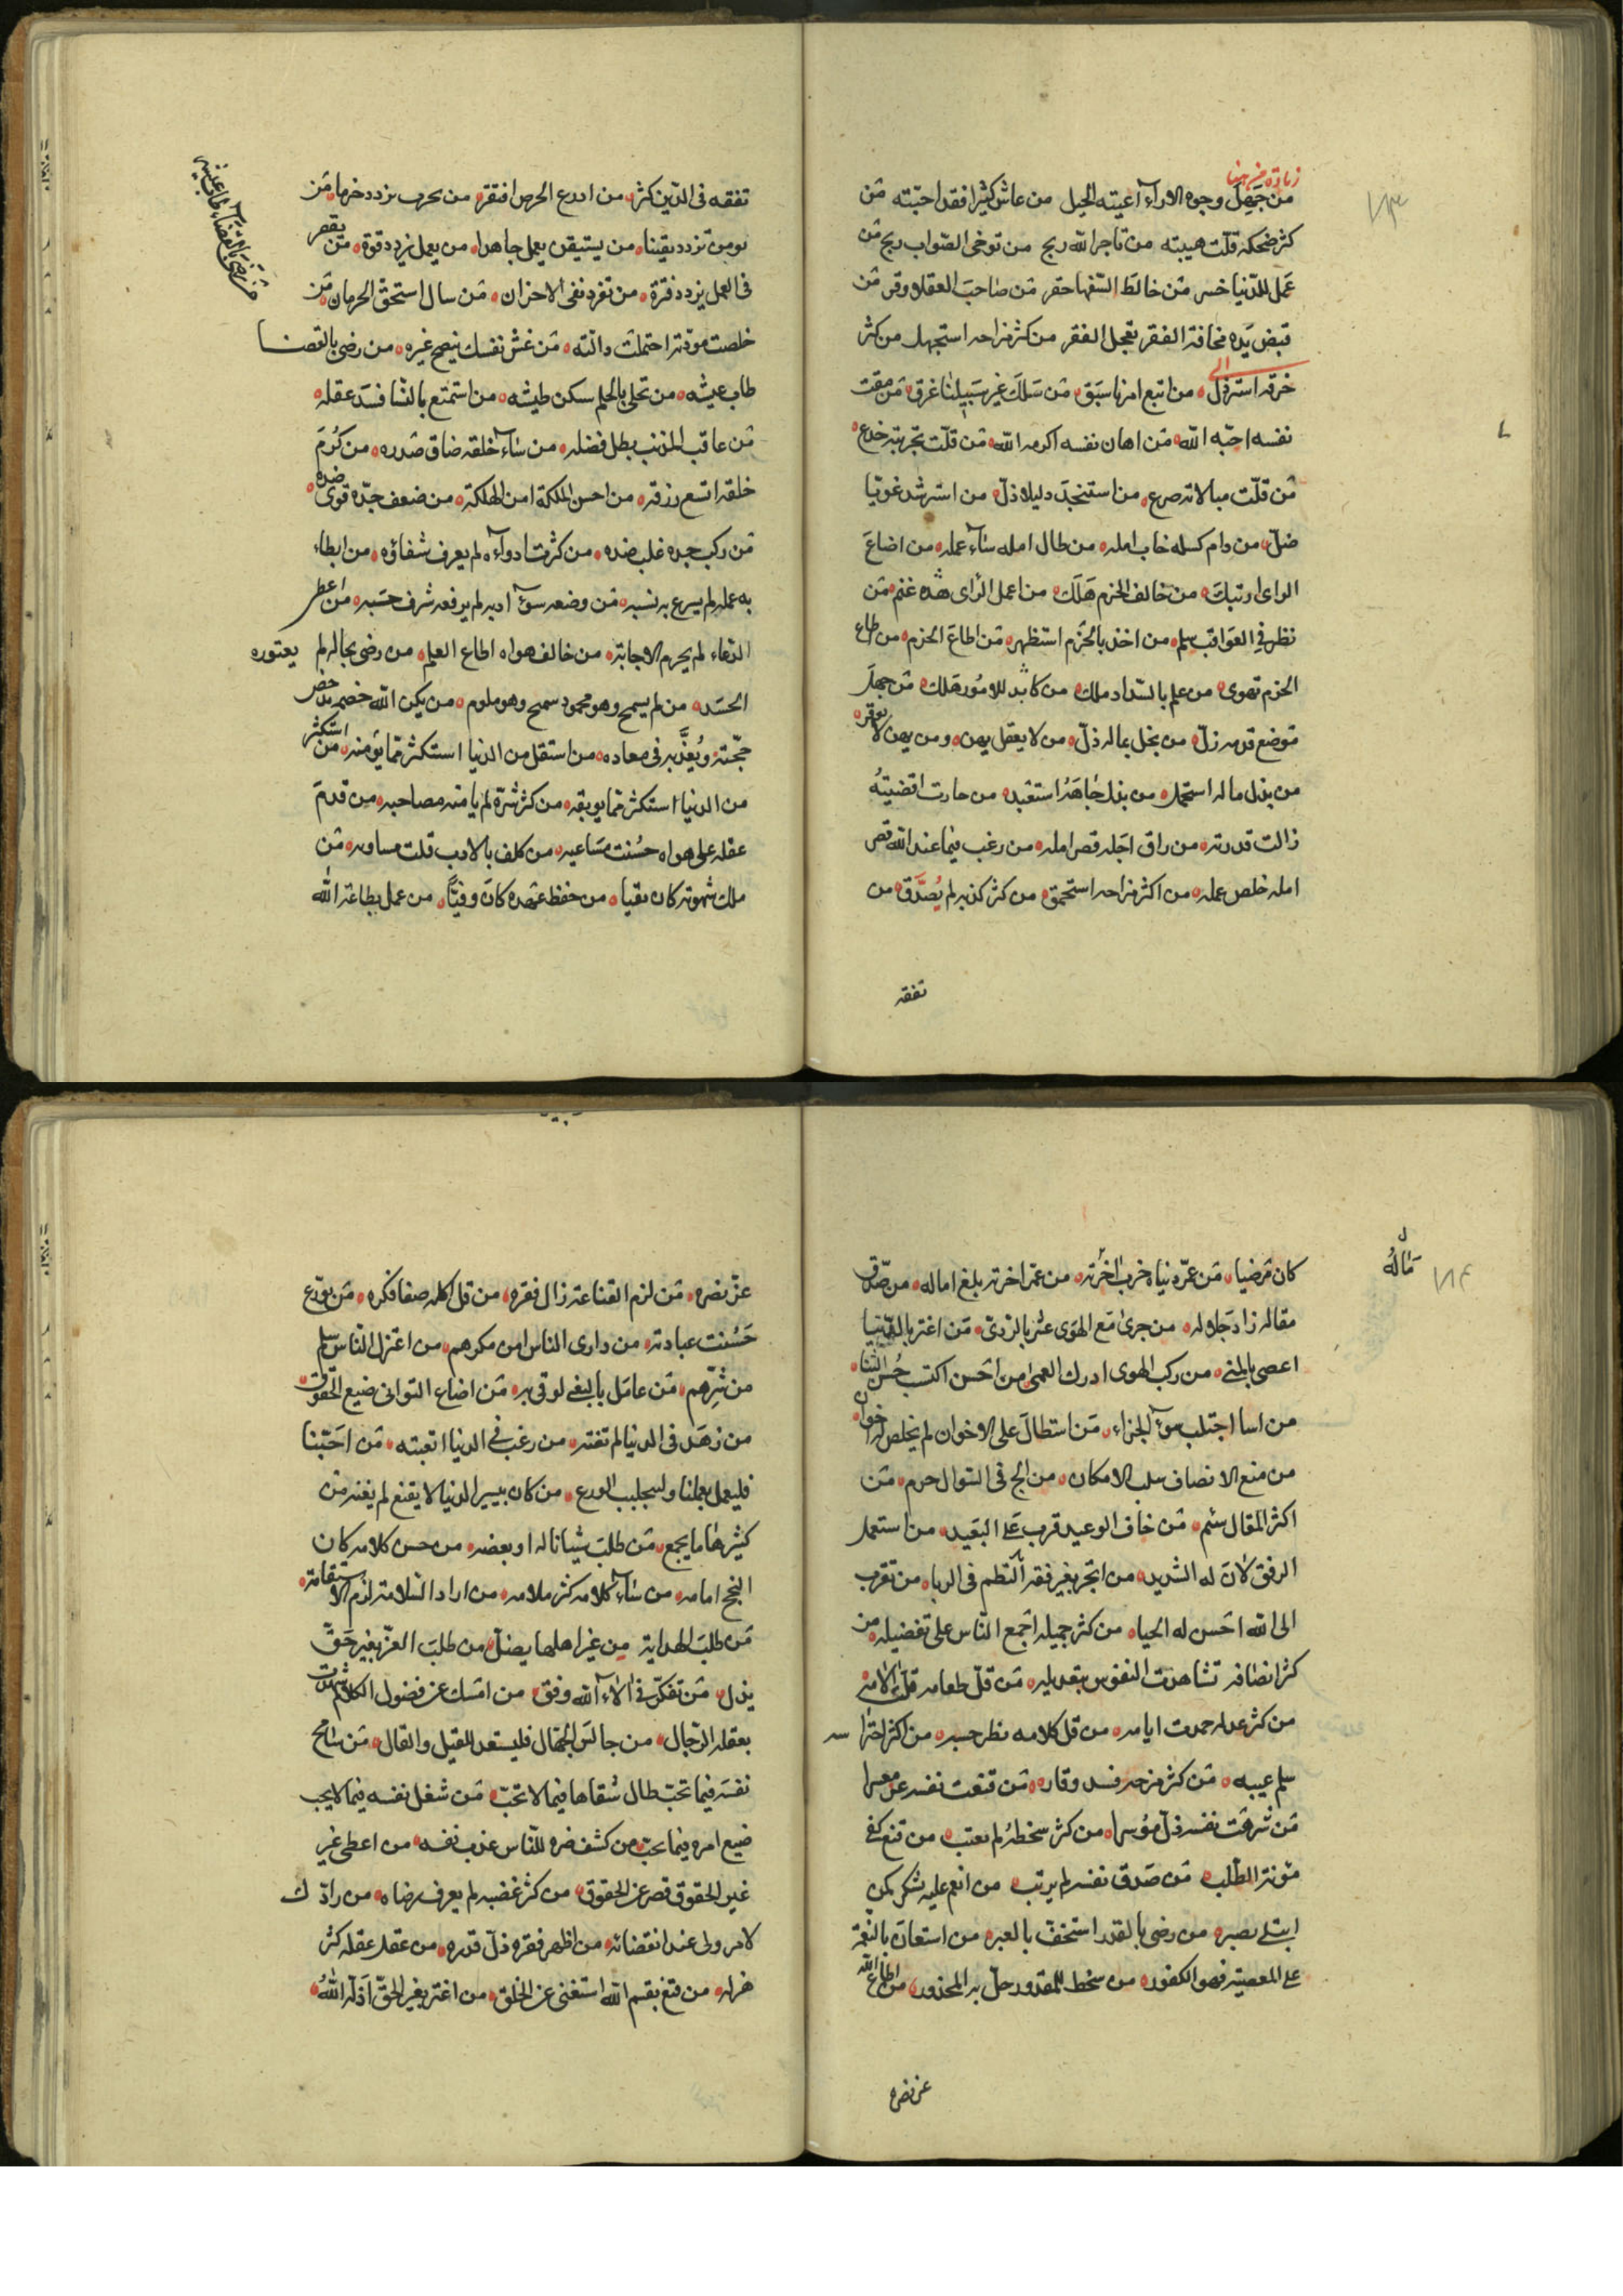 زيادة من هنا
من جَهِلَ وجوه الاراۤء اعيته الحيل من عاش كثيرا فقد احبّته مَن
كثر ضحكه قلّت هيبته من تاجر الله ربح من توخى الصّواب ربح مَن
عَمل للدّنيا خسر مَن خالط السّفها حقر مَن صاحبَ العقلا وقر مَن
قبض يَده مخافة الفقر تعجل الفقر من كثر مزاحه استجهل من كثر
خرقه استرذل من اتبع امرنا سَبَق مَن سَلَكَ غير سَبيلنا غرق مَن مقت
الى
نفسه احبّه الله مَن اهان نفسه اكرمه الله مَن قلّت تجربته خدع
مَن قلّت مبالاته صرع من استنجدَ دليلا ذلّ من استرشد غويّا
ضلّ من دام كسله خاب امله من طال امله ساۤء عمله من اضاعَ
الراى ارتبكَ من خالف الحزم هَلَكَ من اعمل الرّاى غنم مَن
نظر فى العَواقب سلم من اخذ بالحَزم استظهر مَن اطاعَ الحزم من اطاع
الحزم تهوى من علم بالسّداد ملك من كابد للامُور هَلك مَن جهلَ
مَوضع قدمه زلّ من بخل بماله ذلّ من لا يعقل يهن ومن يهن لا يوقر
من بذل ماله استحمد من بذل جاهَهُ استعبد من حارت اقضيتُه
زالت قدرته من راق اجَله قصر امله من رغب فيما عند الله قصر
امله خلص عمله من اكثر مزاحه استحمق من كثر كذبه لم يُصَدَّق من
تفقه
تفقه فى الدّين كثر من ادرع الحرص افتقر من يحرب يزدد خرما مَن
يومن تزدد يقينا من يستيقن يعمل جاهدا من يعمل يزدد قوة مَن يقصر
فى العمل يزدد فترة من تفرد نفى الاحزان مَن سال استحق الحرمان مَن
خلصت مودّته احتملت دالّته مَن غشّ نفسك ينصح غيره من رضى بالقضا
طاب عيشه من تحلى بالحلم سكن طيشه من استمتع بالنّسا فسَدَ عقله
مَن عاقب المذنب بطل فضله من ساۤء خلقه ضاق صَدره من كَرُمَ
خلقه اتسع رزقه من احسن الملكة امن الهلكة من ضعف جدّه قوى ضده
مَن ركب جده غلب ضده من كثرت ادواۤءه لم يعرف شفاؤه من ابطاء
به عمله لم يسرع به نسبه مَن وضعه سوۤء ادبه لم يرفعه شرف حسَبه من اعطى
الدّعاء لم يحرم الاجابة من خالف هواه اطاع العلم من رضى بحاله لم يعتوره
الحسَد من لم يسمح وهو محمود سمح وهو ملوم من يكن الله خصمه يدحض
حجّته ويُعذَّبه فى معاده من استقل من الدنيا استكثر ممّا يؤمنه من استكثر
من الدنيا استكثر ممّا يوبقه من كثر شرّه لم يامنه مصاحبه من قدمَ
عقله على هواه حسُنت مسَاعيه من كلف بالادب قلت مساويه مَن
ملك شهوته كان تقيا من حفظ عَهده كانَ وفيّاً من عمل بطاعة الله
كان مَرضيا مَن عمّر دنياه خرب اخرته من عمر اخرته بلغ اماله من صَدق
مَالَهُ
مقاله زاد جَلاله من جرى مَع الهَوى عثر بالردى مَن اغتر بالدّنيا
اعصى بالمنى من ركب الهوى ادرك العمى من احْسن اكتسب حُسْن الثنا
من اسا اجتلب سوۤء الجزاء مَن استطالَ على الاخوان لم يخلص له اخوان
من منع الانصاف سلب الامكان من الج فى السّوال حرم مَن
اكثر المقال سئم مَن خاف الوعيد قرب على البَعيد من استعمل
الرفق لانَ له الشديد من اتجر بغير فقه التطم فى الربا من تقرب
الى الله احسَن له الحيا من كثر جميله اجمع النّاس على تفضيله من
كثر انصافه تشاهدت النفوس بتعديله مَن قلّ طعامه قلّت الامه
من كثر عدله حمدت ايامه من قل كلامه بطر حسبه من اكثر احترا سه
سلم عيبه مَن كثر مزحه فسد وقاره مَن قنعت نفسه عن معسرا
مَن شرفت نفسه ذلّ مؤسرا من كثر سخطهُ لم يعتب من قنع كفى
مؤنة الطّلب مَن صَدق نفسه لم يرتب من انعم عليه شكر كمن
ابتلى بصبره من رضى بالقدر استخفّ بالعبره من استعانَ بالنّعمة
على المعصية فهو الكفور من سخط للمقدور حلّ به المحذور من اطاع الله
عز نصره
عزّ نصره مَن لزم القناعة زال فقره من قل اكله صفا فكره مَن تورّع
حَسُنت عبادته من دارى الناس امن مكرهم من اعتزل النّاس سلم
من شرّهم مَن عامَل بالبغى لوقى به مَن اضاع التوانى ضيع الحقوق
من زهَد فى الدنيا لم تفته من رغب فى الدنيا اتعبته مَن احَبّنا
فليعمل بعملنا وليتجلبب الورع من كان بيسير الدنيا لا يقنع لم يغنه من
كثيرها ما يجمع مَن طلبَ شيئا ناله او بعضه من حسن كلامه كان
النجح امامه من ساۤء كلامه كثر ملامه من اراد السّلامة لزم الاستقامة
مَن طلبَ الهداية من غير اهلها يضلّ من طلبَ العزّ بغير حَقّ
يذل مَن تفكّر فى الاۤء الله وفق من امسَك عن فضول الكلام شهدت
بعقله الرّجال من جالسَ الجهّال فليستعد للقيل والقال مَن سامح
نفسَه فيما تحبّ طال شقاها فيما لا تحبّ مَن شغل نفسه فيما لا يجب
ضيع امره فيما يحب من كشف ضره للنّاس عذب نفسه من اعطى غير
غير الحقوق قصر عن الحقوق من كثر غضبه لم يعرف رضاه من رادّك
لامر ولى عند انقضائه من اظهر فقره ذلّ قدره من عقل عقله كثر
هزله من قنع بقسم الله استغنى عن الخلق من اغتر بغير الحَقّ اَذلّه اللهُ